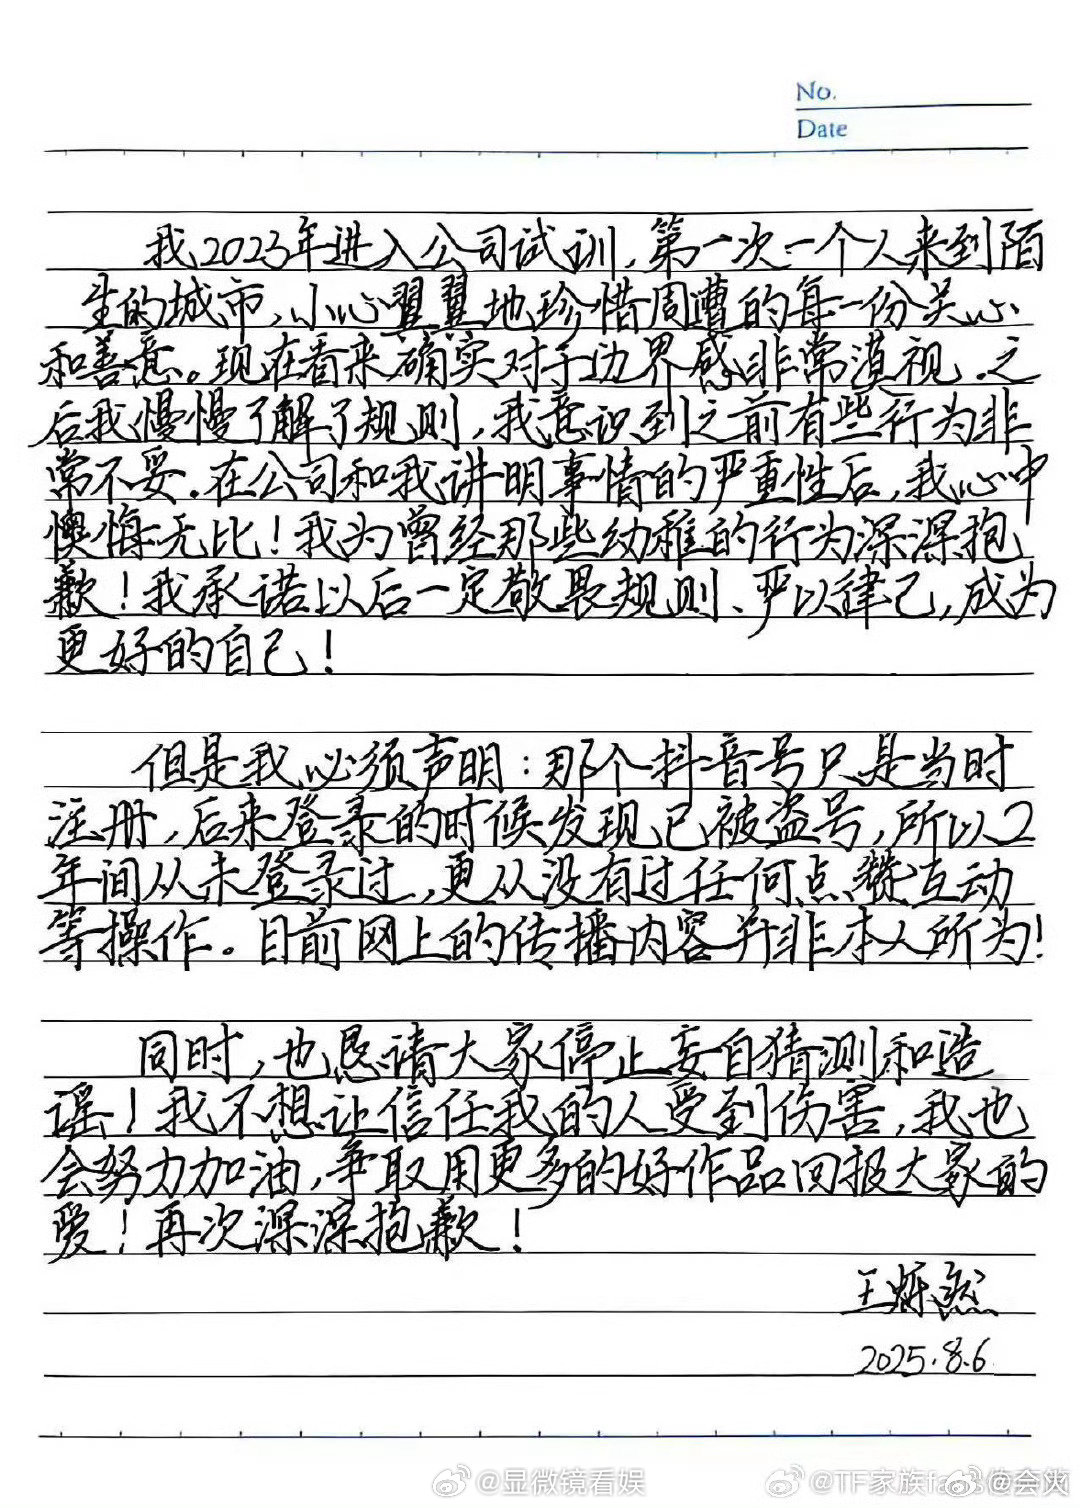 No.
Date
我2023年进入公司试训,第一次一个人来到陌
生的城市,小心翼翼地珍惜周遭的每一份关心
和善意。现在看来确实对于边界感非常漠视.之
后我慢慢了解了规则,我意识到之前有些行为非
常不妥.在公司和我讲明事情的严重性后,我心中
懊悔无比!我为曾经那些幼稚的行为深深抱
歉!我承诺以后一定敬畏规则、严以律己,成为
更好的自己!
但是我必须声明:那个抖音号只是当时
注册,后来登录的时候发现已被盗号,所以2
年间从未登录过,更从没有过任何点赞互动
等操作。目前网上的传播内容并非本人所为!
同时,也恳请大家停止妄自猜测和造
谣!我不想让信任我的人受到伤害,我也
会努力加油,争取用更多的好作品回报大家的
爱!再次深深抱歉!
王烁然
2025.8.6
@显微镜看娱
@TF家族fans